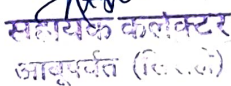 सहायक कलेक्टर
आबूपर्वत